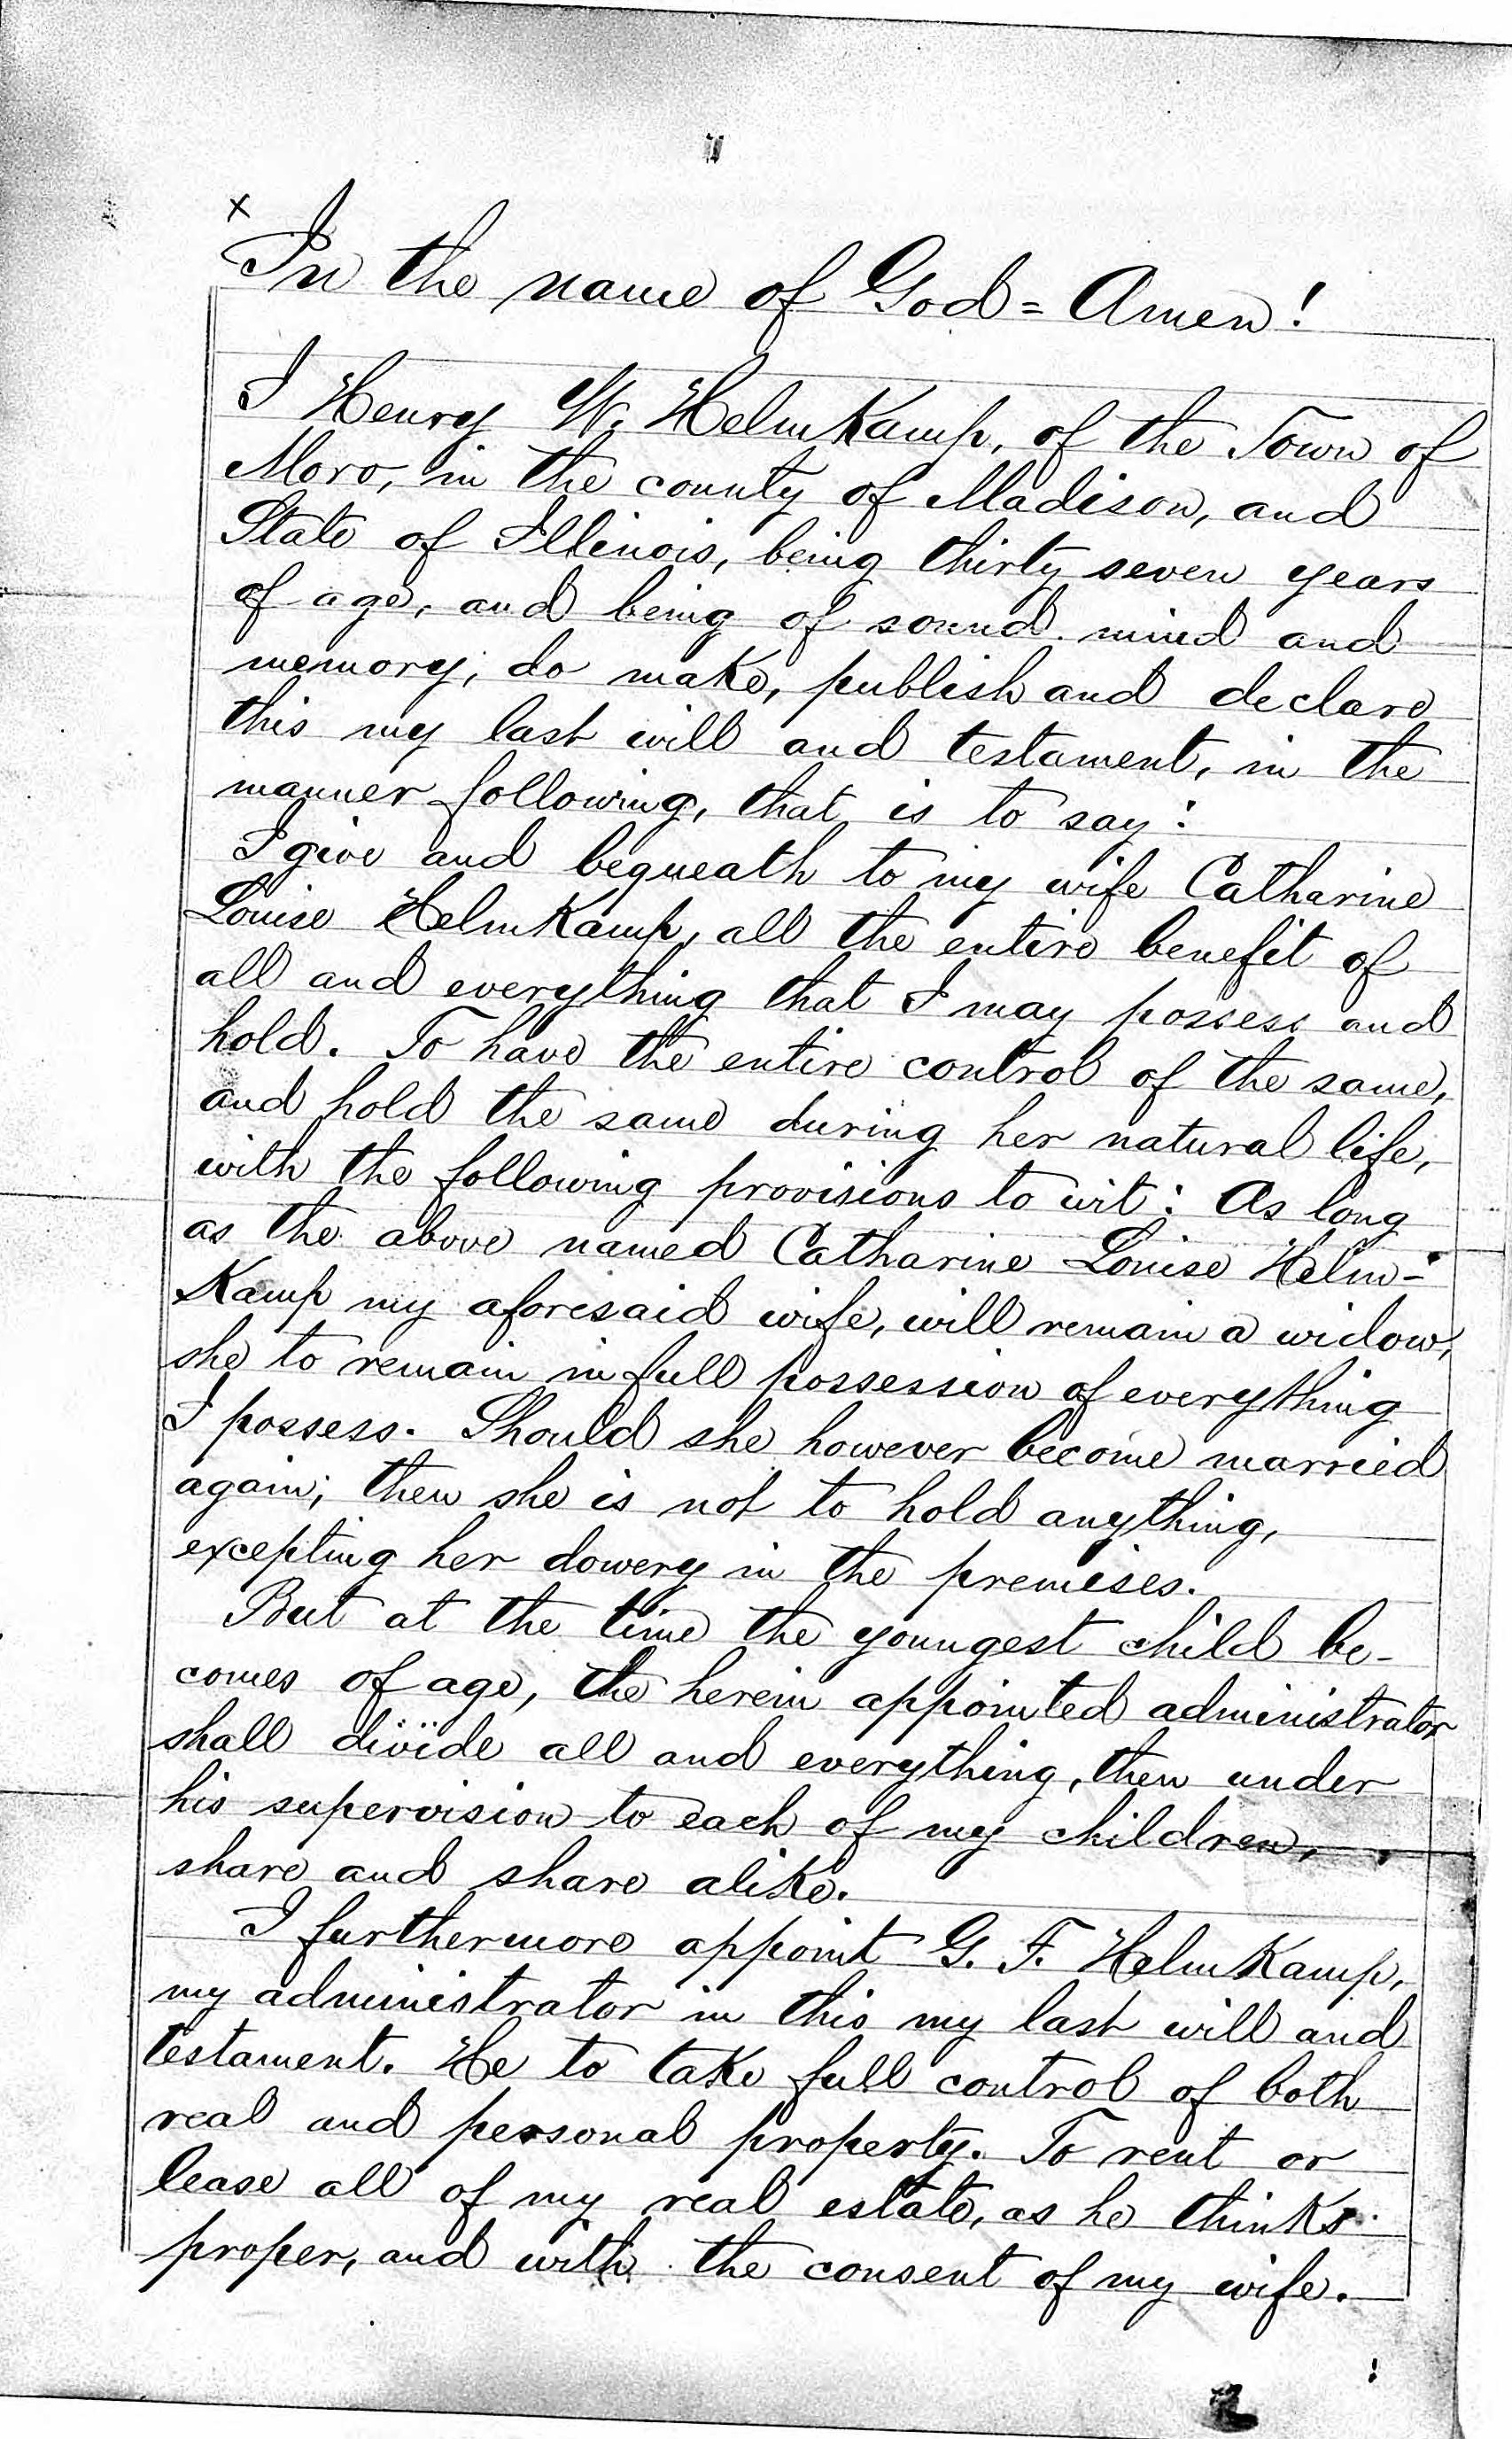 x
In the name of God = Amen!
I Henry W. HelmKamp, of the Town of
Moro, in the county of Madison, and
State of Illinois, being thirty seven years
of age, and being of sound mind and
memory; do make, publish and declare
this my last will and testament, in the
manner following, that is to say:
I give and bequeath to my wife Catharine
Louise HelmKamp, all the entire benefit of
all and everything that I may possess and
hold. To have the entire control of the same,
and hold the same during her natural life,
with the following provisions to wit: As long
as the above named Catharine Louise Helm-
Kamp my aforesaid wife, will remain a widow,
she to remain in full possession of everything
I possess. Should she however become married
again; then she is not to hold anything,
excepting her dowery in the premises.
But at the time the youngest child be-
comes of age, the herein appointed administrator
shall divide all and everything, then under
his supervision to each of my children,
share and share alike.
I furthermore appoint G. F. HelmKamp,
my administrator in this my last will and
testament. He to take full control of both
real and personal property. To rent or
lease all of my real estate, as he thinks
proper, and with the consent of my wife.